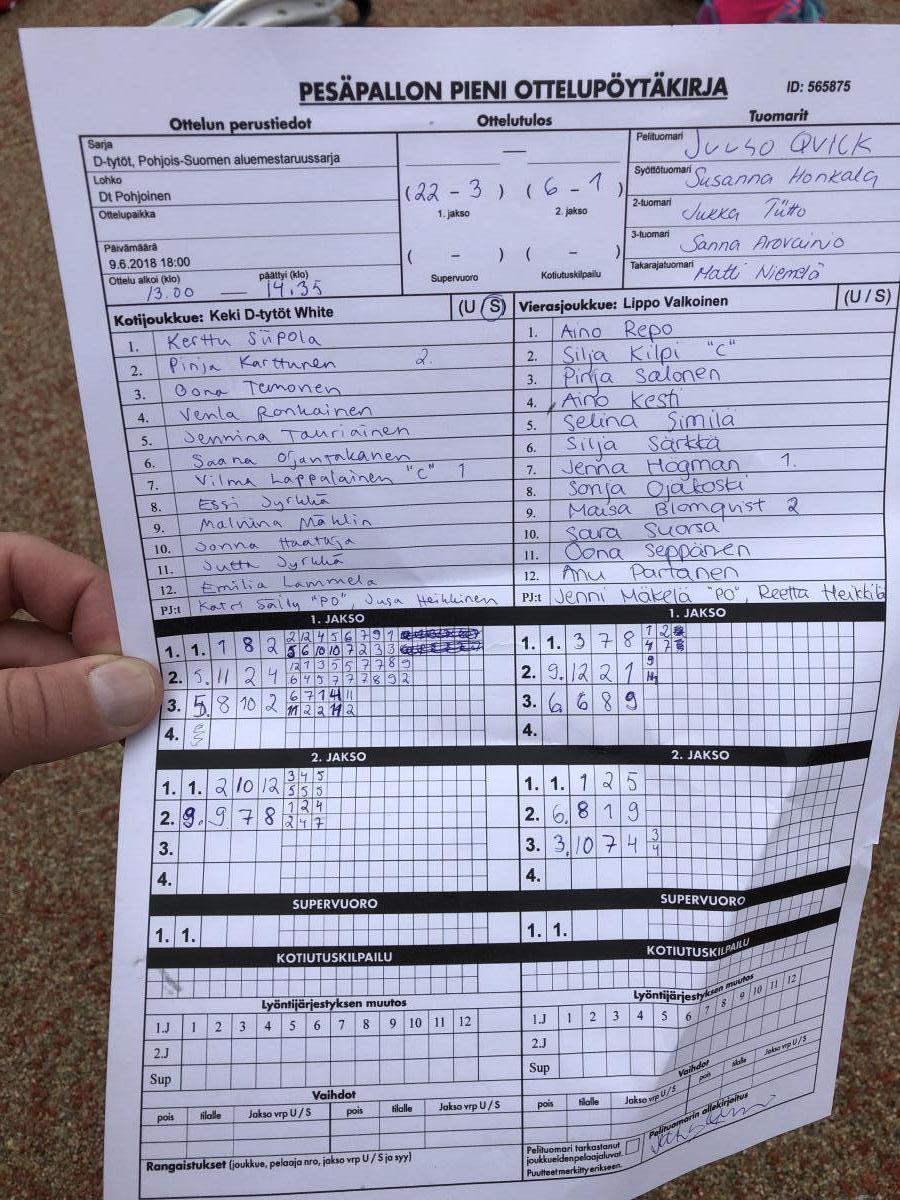 PESÄPALLON PIENI OTTELUPÖYTÄKIRJA ID: 565875
Ottelun perustiedot Ottelutulos Tuomarit
Sarja
D-tytöt, Pohjois-Suomen aluemestaruussarja
Lohko
Dt Pohjoinen
Ottelupaikka
Päivämäärä
9.6.2018 18:00
Ottelu alkoi (klo) päättyi (klo)
13.00 — 14.35
—
(22 - 3) (6 - 1)
1. jakso 2. jakso
( - ) ( - )
Supervuoro Kotiutuskilpailu
Pelituomari Juuso QVICK
Syöttötuomari Susanna Honkala
2-tuomari Jukka Tiitto
3-tuomari Sanna Arovainio
Takarajatuomari Matti Niemelä
Kotijoukkue: Keki D-tytöt White (U / S)
1. Kerttu Siipola
2. Pinja Karttunen 2.
3. Oona Temonen
4. Venla Ronkainen
5. Jennina Tauriainen
6. Saana Ojantakanen
7. Vilma Lappalainen "C" 1
8. Essi Jyrkkä
9. Malviina Mählin
10. Jonna Haataja
11. Jutta Jyrkkä
12. Emilia Lammela
PJ:t Katri Säily "PO", Jusa Heikkinen
Vierasjoukkue: Lippo Valkoinen (U / S)
1. Aino Repo
2. Silja Kilpi "C"
3. Pinja Salonen
4. Aino Kesti
5. Selina Similä
6. Silja Särkkä
7. Jenna Högman 1.
8. Sonja Ojakoski
9. Maisa Blomqvist 2
10. Sara Suorsa
11. Oona Seppänen
12. Anu Partanen
PJ:t Jenni Mäkelä "PO", Reetta Heikkilä
1. JAKSO
1. 1. 1 8 2 2 12 4 5 6 7 9 1
5 6 10 10 7 2 3 3
2. 5. 11 2 4 12 1 3 5 5 7 7 8 9
6 4 5 7 7 7 8 9 2
3. 5. 8 10 2 6 7 1 4 11
11 2 2 11 2
4.
1. JAKSO
1. 1. 3 7 8 1 2
4 7
2. 9. 12 2 1 9
3. 6 6 8 9
4.
2. JAKSO
1. 1. 2 10 12 3 4 5
5 5 5
2. 9. 9 7 8 1 2 4
2 4 7
3.
4.
2. JAKSO
1. 1. 1 2 5
2. 6. 8 1 9
3. 3. 10 7 4 3
4
4.
SUPERVUORO
1. 1.
SUPERVUORO
1. 1.
KOTIUTUSKILPAILU
KOTIUTUSKILPAILU
Lyöntijärjestyksen muutos
1.J 1 2 3 4 5 6 7 8 9 10 11 12
2.J
Sup
Lyöntijärjestyksen muutos
1.J 1 2 3 4 5 6 7 8 9 10 11 12
2.J
Sup
Vaihdot
pois tilalle Jakso vrp U / S pois tilalle Jakso vrp U / S
Vaihdot
pois tilalle Jakso vrp U / S pois tilalle Jakso vrp U / S
Rangaistukset (joukkue, pelaaja nro, jakso vrp U / S ja syy)
Pelituomari tarkastanut
joukkueiden pelaajaluvat.
Puutteet merkitty erikseen.
Pelituomarin allekirjoitus